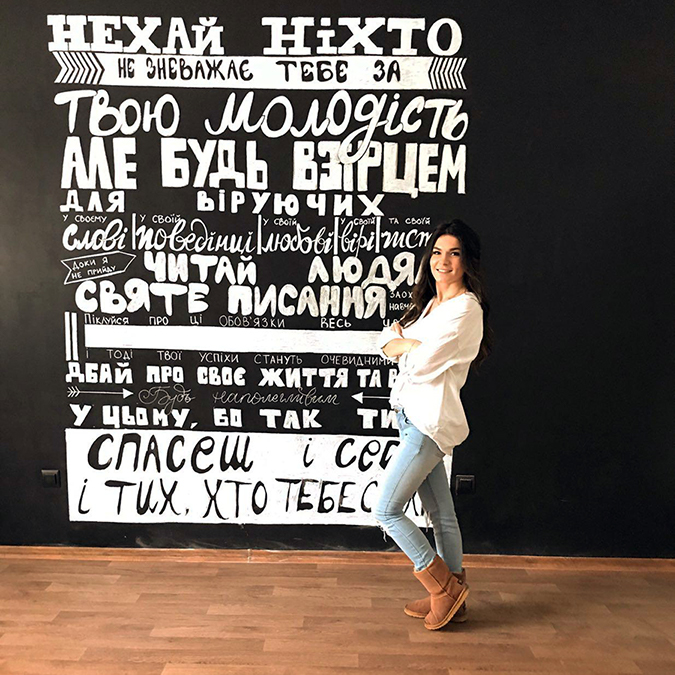 НЕХАЙ НІХТО
НЕ ЗНЕВАЖАЄ ТЕБЕ ЗА
ТВОЮ МОЛОДІСТЬ
АЛЕ БУДЬ ВЗІРЦЕМ
ДЛЯ ВІРУЮЧИХ
У СВОЄМУ У СВОЇЙ У СВОЇЙ У СВОЇЙ ТА СВОЇЙ
слові поведінці любові вірі чист
ДОКИ Я
НЕ ПРИЙДУ
ЧИТАЙ ЛЮДЯ
СВЯТЕ ПИСАННЯ
ЗАОХ
НАВЧ
ПІКЛУЙСЯ ПРО ЦІ ОБОВ'ЯЗКИ ВЕСЬ Ч
І ТОДІ ТВОЇ УСПІХИ СТАНУТЬ ОЧЕВИДНИМИ
ДБАЙ ПРО СВОЄ ЖИТТЯ ТА В
Будь наполегливим
У ЦЬОМУ, БО ТАК ТИ
СПАСЕШ І СЕБ
І ТИХ, ХТО ТЕБЕ С